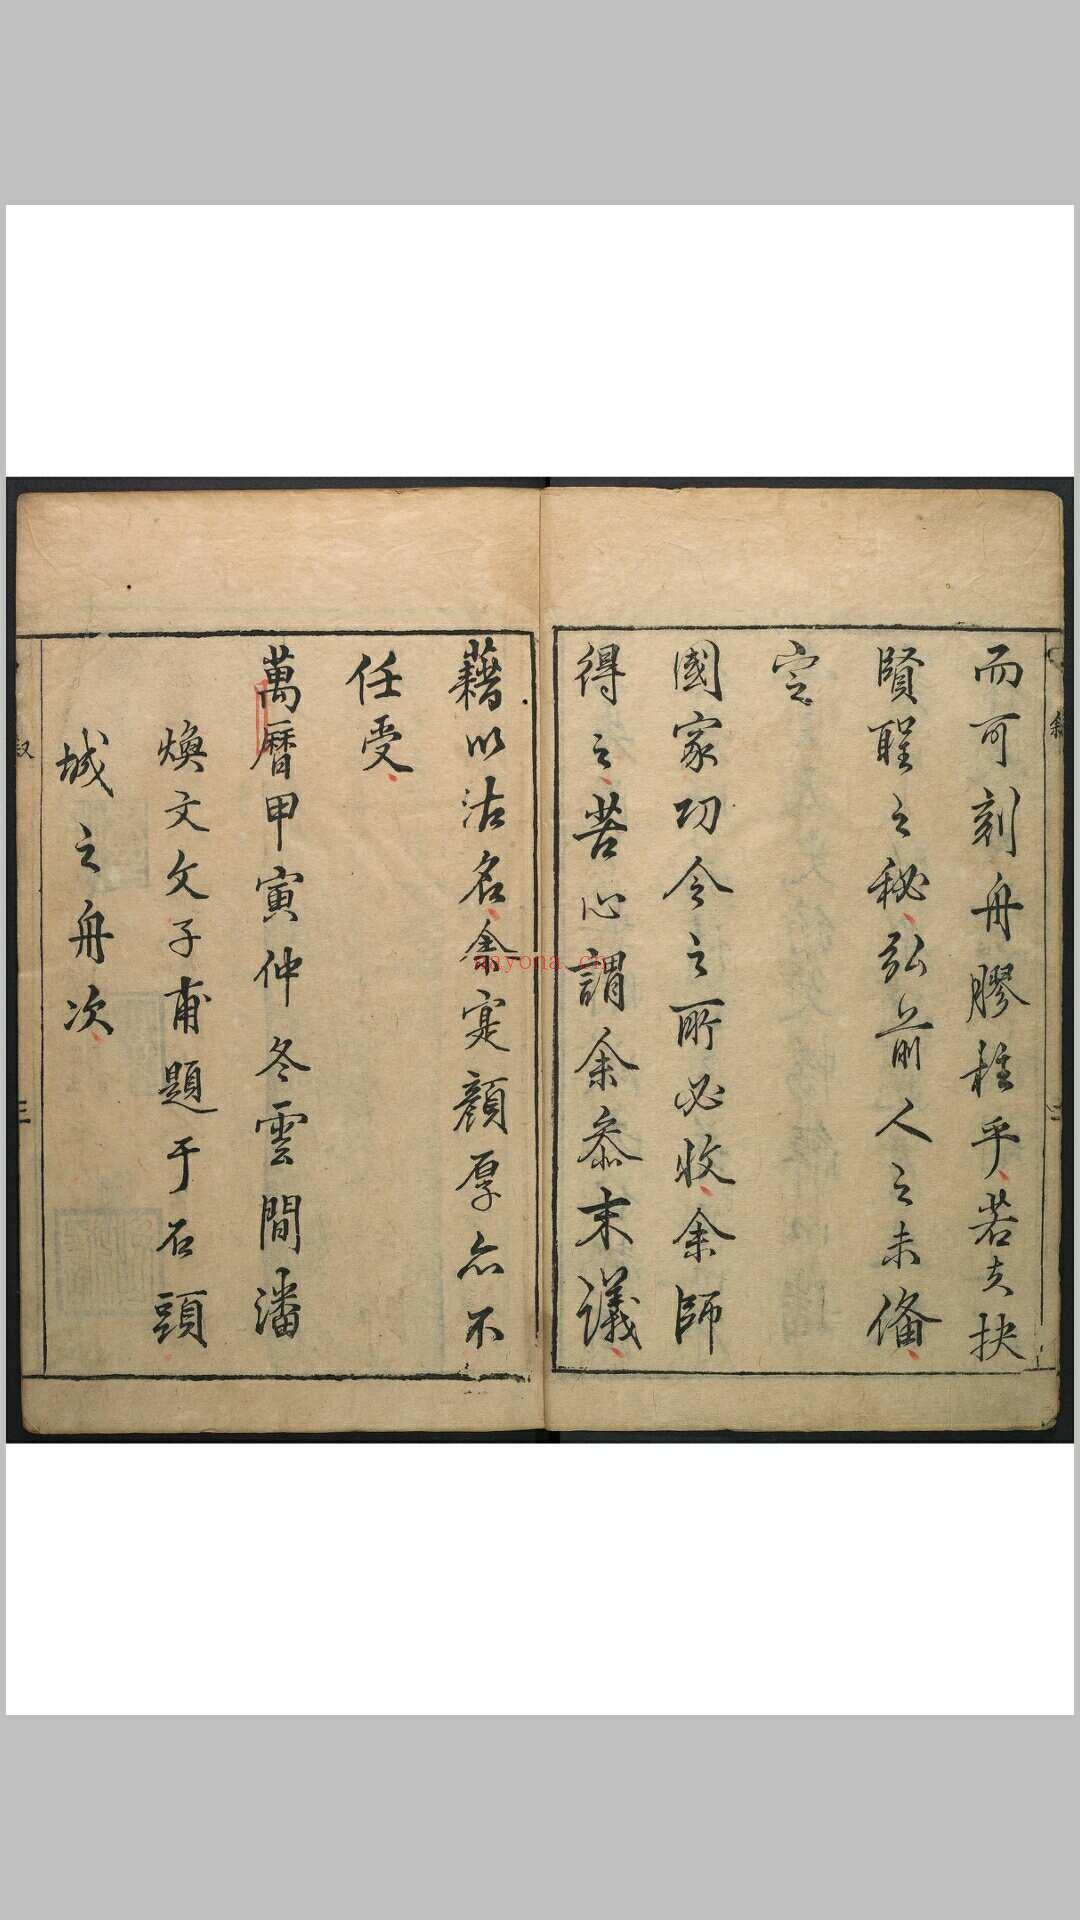 而可刻舟膠柱乎若夫抉
賢聖之秘弘前人之未備
定
國家功令之所必收余師
得之苦心謂余叅末議
藉以沽名余寔顏厚亦不
任受
萬曆甲寅仲冬雲間潘
煥文文子甫題于石頭
城之舟次
nayona.cn